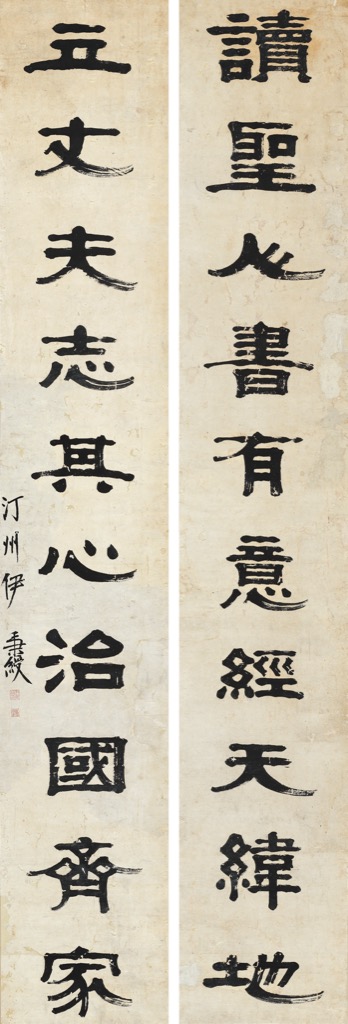 讀聖人書有意經天緯地
立丈夫志其心治國齊家
汀州伊秉綬